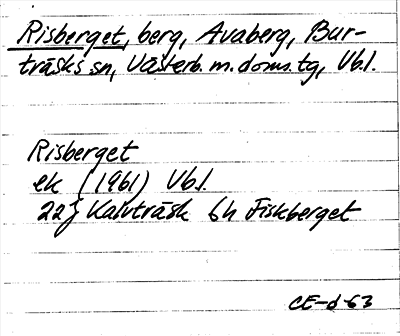 Risberget, berg, Avaberg, Bur-
träsks sn, Västerb. m. doms.tg, Vb.l.
Risberget
ek (1961) Vb.l.
22J Kalvträsk 6h Fiskberget
CE-d-63